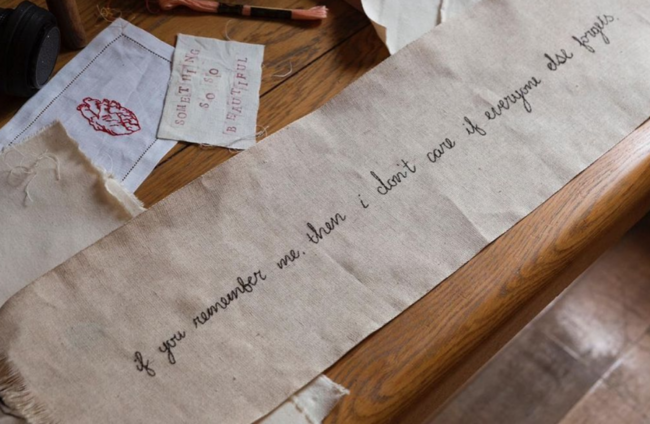 SOMETHING
SO SO
BEAUTIFUL
if you remember me, then i don't care if everyone else forgets.